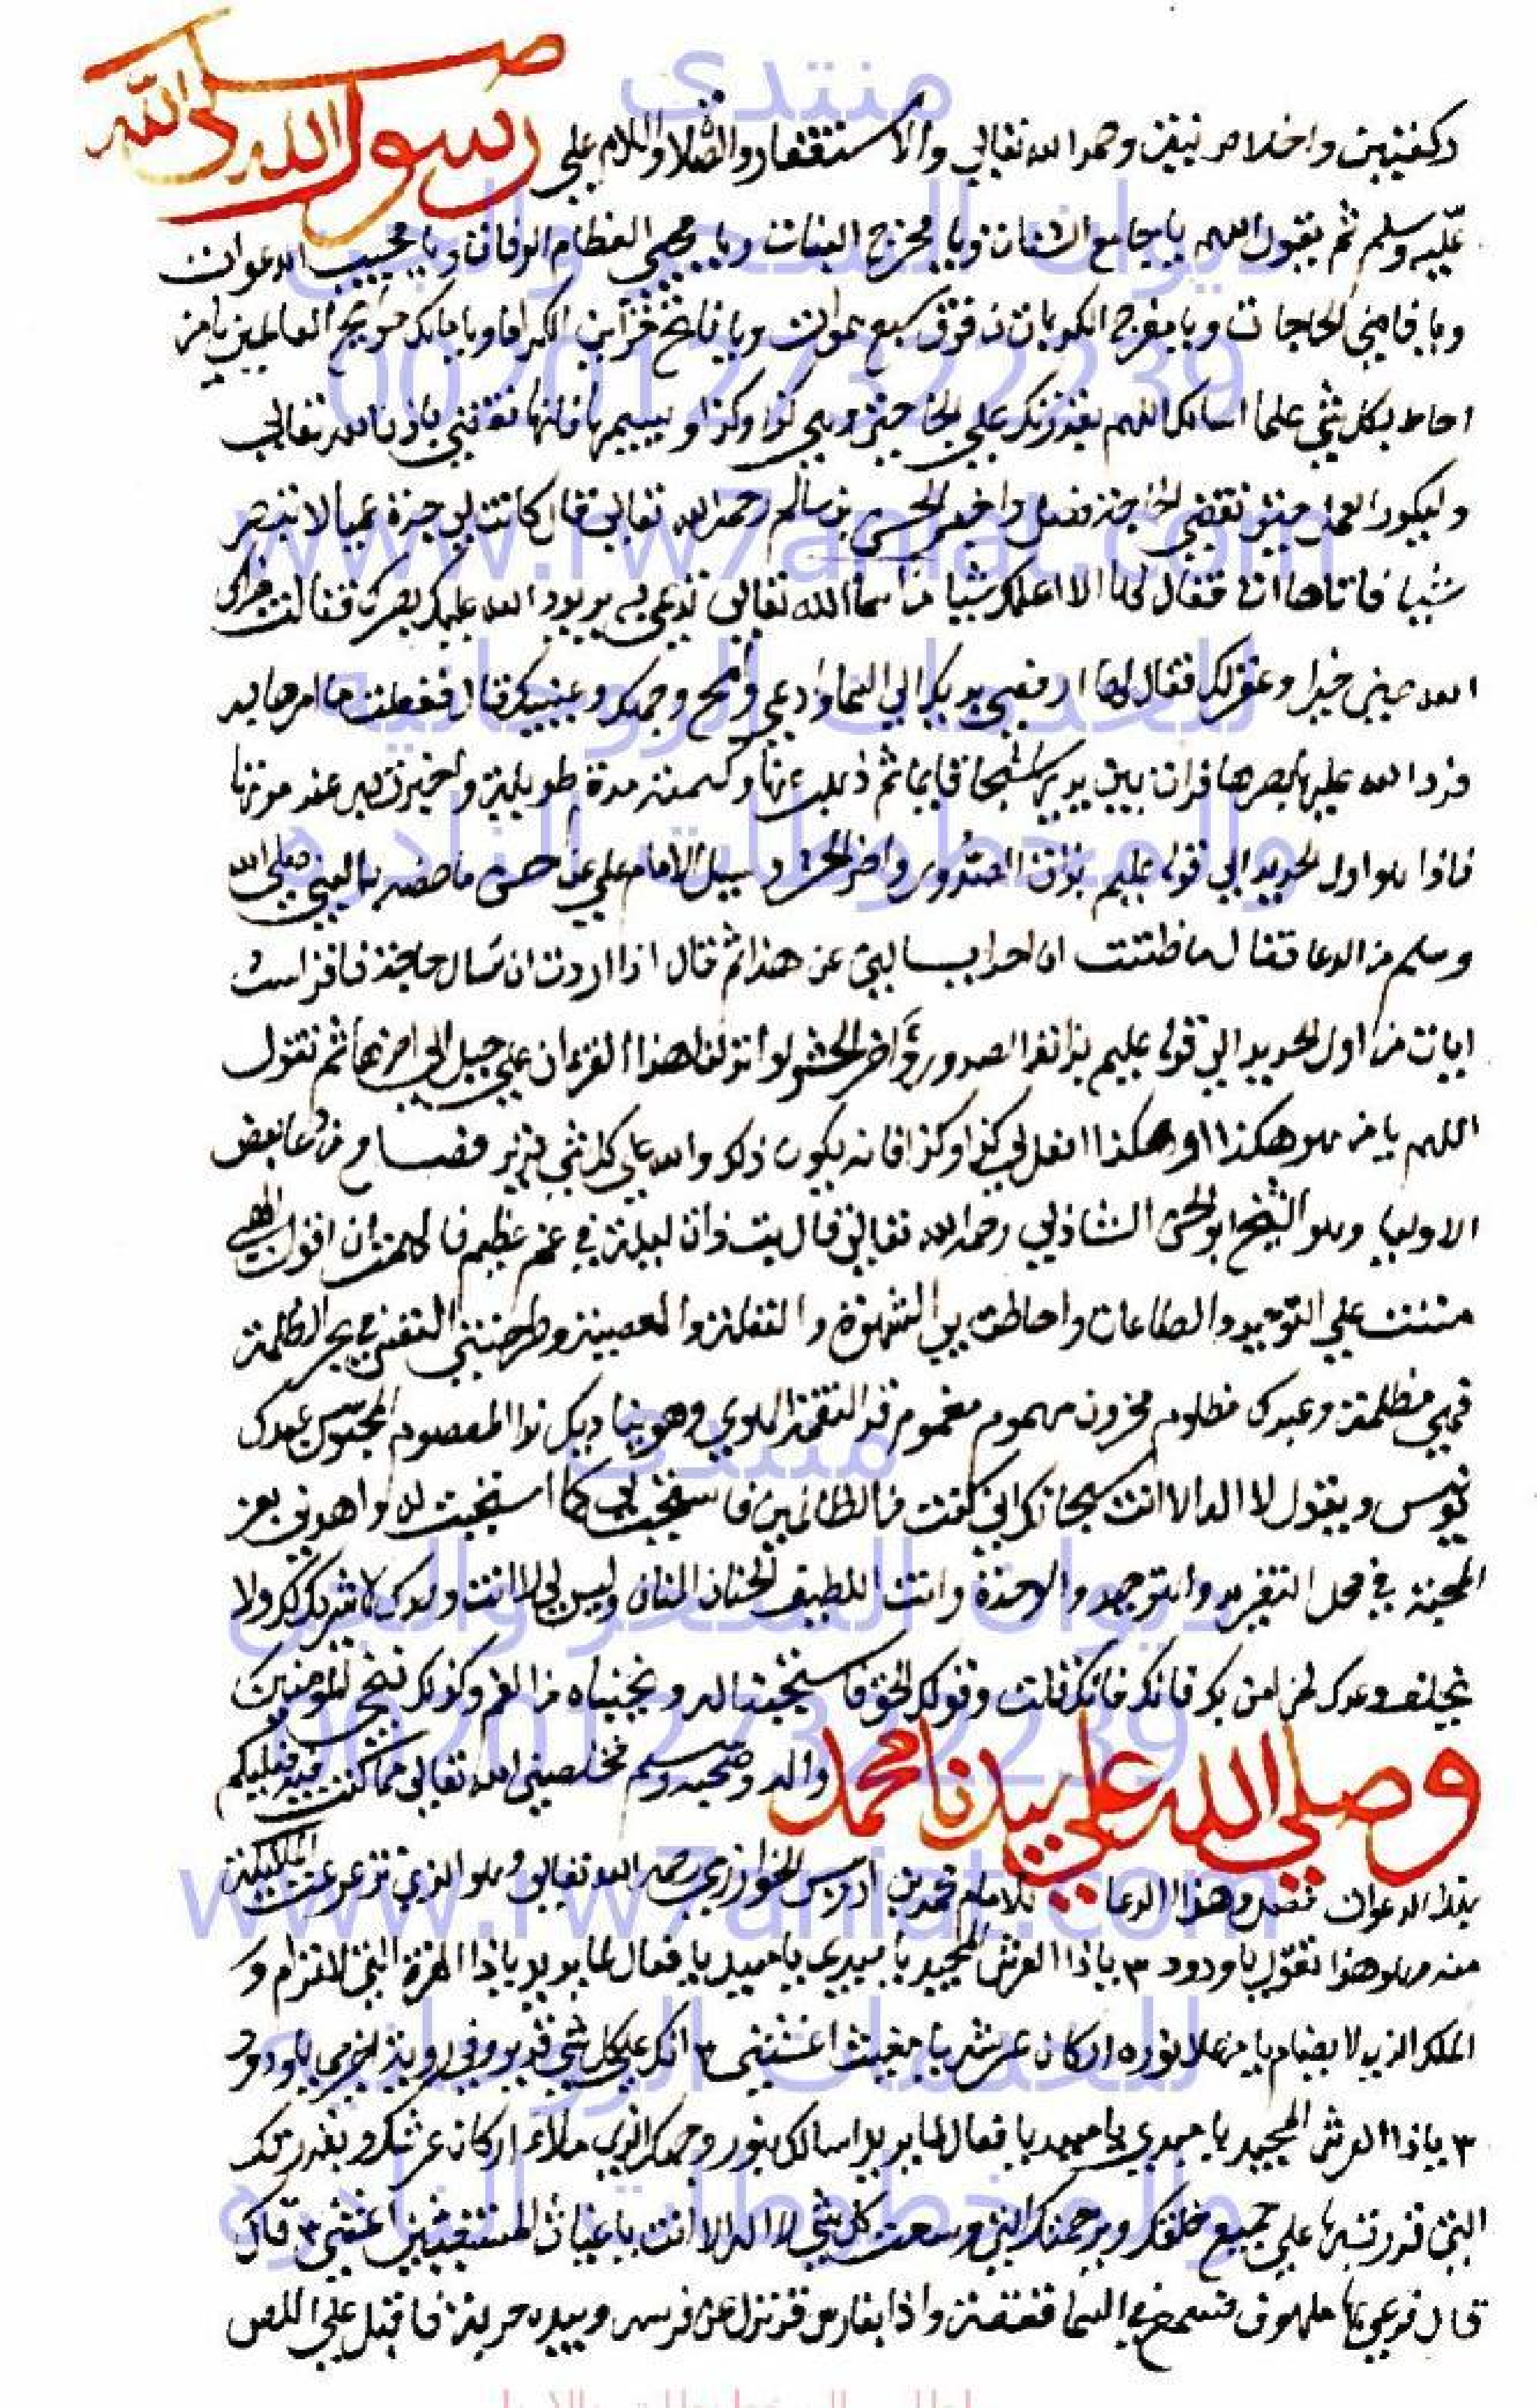 ركعتين واخلاص نيته وحمد الله تعالي والاستغفار والصلاة والسلام علي رسول الله صلى الله
عليه وسلم ثم يقول اللهم يا جامع الشتات ويا مخرج النبات ويا محيي العظام الرفات ويا مجيب الدعوات
ويا قاضي الحاجات ويا مفرج الكربات من فوق سبع سموات ويا فاتح خزاين الكرامة ويا مالك حوايج العالمين يا من
احاط بكل شي علما اسالك اللهم بقدرتك علي الحاجة وهي كذا وكذا ويسميها فانها تقضي باذن الله تعالي
وليكرر العمل حتي تقضي الحاجة فصل واخبر الحسن بن سالم رحمه الله تعالي قال كانت لي جدة عميا لا تبصر
شيا فاتاها ات فقال لها الا اعلمك شيا من اسما الله تعالي تدعي به يرد الله عليك بصرك فقالت جزاك
الله عني خيرا وغفر لك فقال لها ارفعي يديك الي السما وادعي وامسحي وجهك وعينيك قال ففعلت ما امرها به
فرد الله عليها بصرها فرات بين يديها شبحا قايما ثم ذهب عنها وكتمته مدة طويلة واخبرت به عند موتها
فاذا هو اول الحديد الي قوله عليم بذات الصدور واخر الحشر وسيل الامام علي عن احسن ما خصه به النبي صلي الله
وسلم من الدعا فقال ما ظننت ان احدا يسالني عن هذا ثم قال اذا اردت ان تسال حاجة فاقرا ست
ايات من اول الحديد الي قوله عليم بذات الصدور واخر الحشر لو انزلنا هذا القران علي جبل الي اخرها ثم تقول
اللهم يا من هو هكذا وهكذا افعل لي كذا وكذا فانه يكون ذلك والله علي كل شي قدير فصل ومن دعا بعض
الاوليا وهو الشيخ ابو الحسن الشاذلي رحمه الله تعالي قال بت ذات ليلة في غم عظيم فالهمت ان اقول الهي
مننت علي التوحيد والطاعات واحاطت بي الشهوة والغفلة والمعصية وطرحتني النفس في بحر الظلمة
فهي مظلمة وعبدك مظلوم محزون مهموم مغموم قد التقمه الهوي وهو يناديك ندا المعصوم المحبوس عبدك
يونس ويقول لا اله الا انت سبحانك اني كنت من الظالمين فاستجب لي كما استجبت له واهدني بعز
المحبة في محل التفريد والتوحيد والوحدة وانت اللطيف الحنان المنان وليس لي الا انت وحدك لا شريك لك ولا
يخلف وعدك لمن امن بك فانك قلت وقولك الحق فاستجبنا له ونجيناه من الغم وكذلك ننجي المومنين
وصلي الله علي سيدنا محمد واله وصحبه وسلم فخلصني الله تعالي مما كنت فيه فعليكم
بهذا الدعوات فصل وهذا الدعا للامام محمد بن ادريس الخوارزمي رحمه الله تعالي وهو الذي تزعزعت الملايكة
منه وهو هذا تقول يا ودود ٣ يا ذا العرش المجيد يا مبدي يا معيد يا فعال لما يريد يا ذا العزة التي لا ترام و
الملك الذي لا يضام يا من ملا نوره اركان عرشه يا مغيث اغثني ٣ انك علي كل شي قدير وفي رواية اخري يا ودود
٣ يا ذا العرش المجيد يا مبدي يا معيد يا فعال لما يريد اسالك بنور وجهك الذي ملاء اركان عرشك وبقدرتك
التي قدرت بها علي جميع خلقك وبرحمتك التي وسعت كل شي لا اله الا انت يا غياث المستغيثين اغثني ٣ قال
قال فدعي بها ملهوف فسمع في السما قعقعة واذا بفارس قد نزل عن فرسه وبيده حربة فاقبل علي اللص
منتدى
ديوان السحر والجن
00201273322239
www.rw7aniat.com
للخدمات الروحانيه
والمخطوطات النادره
منتدى
ديوان السحر والجن
00201273322239
www.rw7aniat.com
للخدمات الروحانيه
والمخطوطات النادره